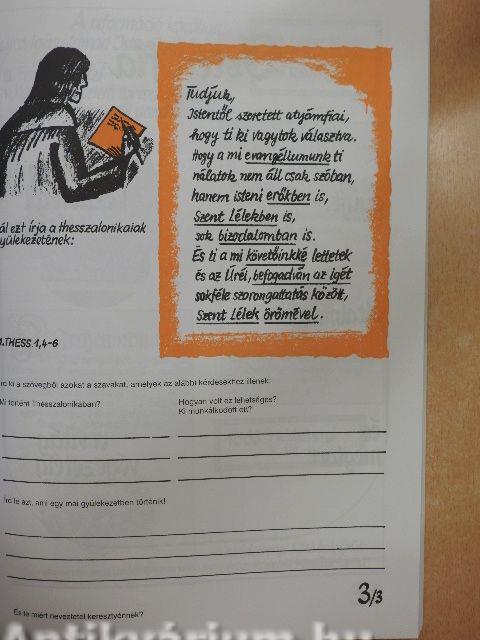 Tudjuk,
Istentől szeretett atyámfiai,
hogy ti ki vagytok választva.
Hogy a mi evangéliumunk ti
nálatok nem áll csak szóban,
hanem isteni erőkben is,
Szent Lélekben is,
sok bizodalomban is.
És ti a mi követőinkké lettetek
és az Úréi, befogadván az igét
sokféle szorongattatás között,
Szent Lélek örömével.
ál ezt írja a thesszalonikaiak
yülekezetének:
.THESS.1,4-6
ki a szövegből azokat a szavakat, amelyek az alábbi kérdésekhez illenek:
Mi történt Thesszalonikában?
Hogyan volt ez lehetséges?
Ki munkálkodott ott?
Írd le azt, ami egy mai gyülekezetben történik!
3/3
És te miért neveztetel keresztyénnek?
Antikvárium.hu